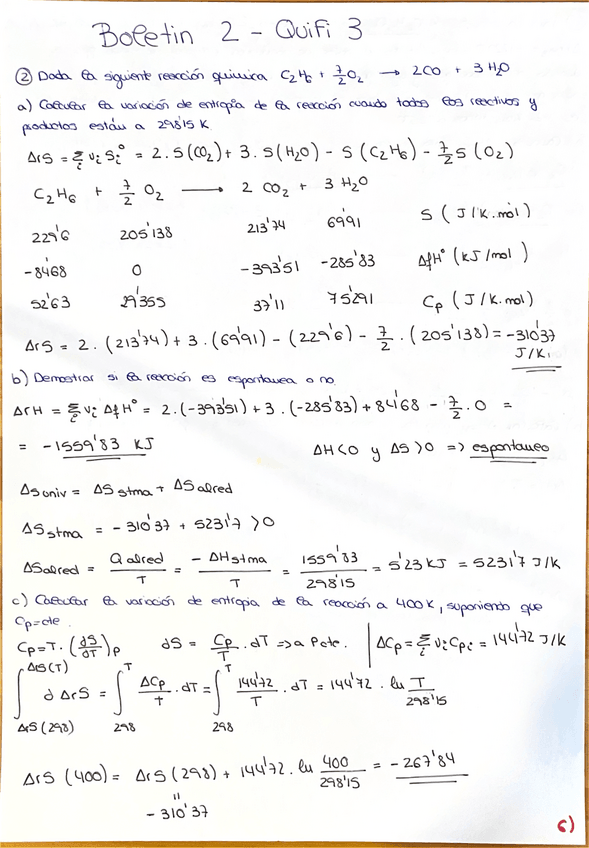 Boletin 2 - Quifi 3
② Dada la siguiente reacción química C₂H₆ + 7/2 O₂ → 2CO + 3 H₂O
a) Calcular la variación de entropía de la reacción cuando todos los reactivos y
productos están a 298'15 K.
ΔrS = Σᵢ νᵢ Sᵢ° = 2. S(CO₂) + 3. S(H₂O) - S(C₂H₆) - 7/2 S(O₂)
C₂H₆ + 7/2 O₂ → 2 CO₂ + 3 H₂O
229'6 205'138 213'74 69'91 S (J/K.mol)
-84'68 0 -393'51 -285'83 ΔfH° (kJ/mol)
52'63 29'355 37'11 75'291 Cp (J/K.mol)
ΔrS = 2. (213'74) + 3. (69'91) - (229'6) - 7/2 . (205'138) = -310'37
J/K.
b) Demostrar si la reacción es espontanea o no.
ΔrH = Σᵢ νᵢ ΔfH° = 2.(-393'51) + 3.(-285'83) + 84'68 - 7/2 . 0 =
= -1559'83 KJ ΔH<0 y ΔS>0 => espontaneo
ΔSuniv = ΔSstma + ΔSalred
ΔSstma = -310'37 + 5231'7 >0
ΔSalred = Qalred/T = -ΔHstma/T = 1559'83/298'15 = 5'23 KJ = 5231'7 J/K
c) Calcular la variación de entropia de la reacción a 400K, suponiendo que
Cp=cte.
Cp=T. (dS/dT)p dS = Cp/T . dT => a Pcte. | ΔCp = Σᵢ νᵢ Cpᵢ = 144'72 J/K
∫ΔrS(298)^ΔrS(T) d ΔrS = ∫298^T ΔCp/T . dT = ∫298^T 144'72/T . dT = 144'72 . ln T/298'15
ΔrS (400) = ΔrS (298) + 144'72 . ln 400/298'15 = -267'84
"
-310'37
c)